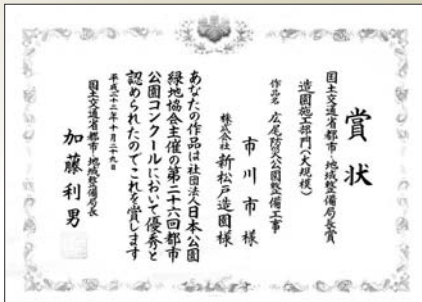 賞状
国土交通省都市・地域整備局長賞
造園施工部門(大規模)
作品名 広尾防災公園整備工事
市川市様
株式会社 新松戸造園様
あなたの作品は社団法人日本公園
緑地協会主催の第二十六回都市
公園コンクールにおいて優秀と
認められたのでこれを賞します
平成二十二年十月二十九日
国土交通省都市・地域整備局長
加藤利男